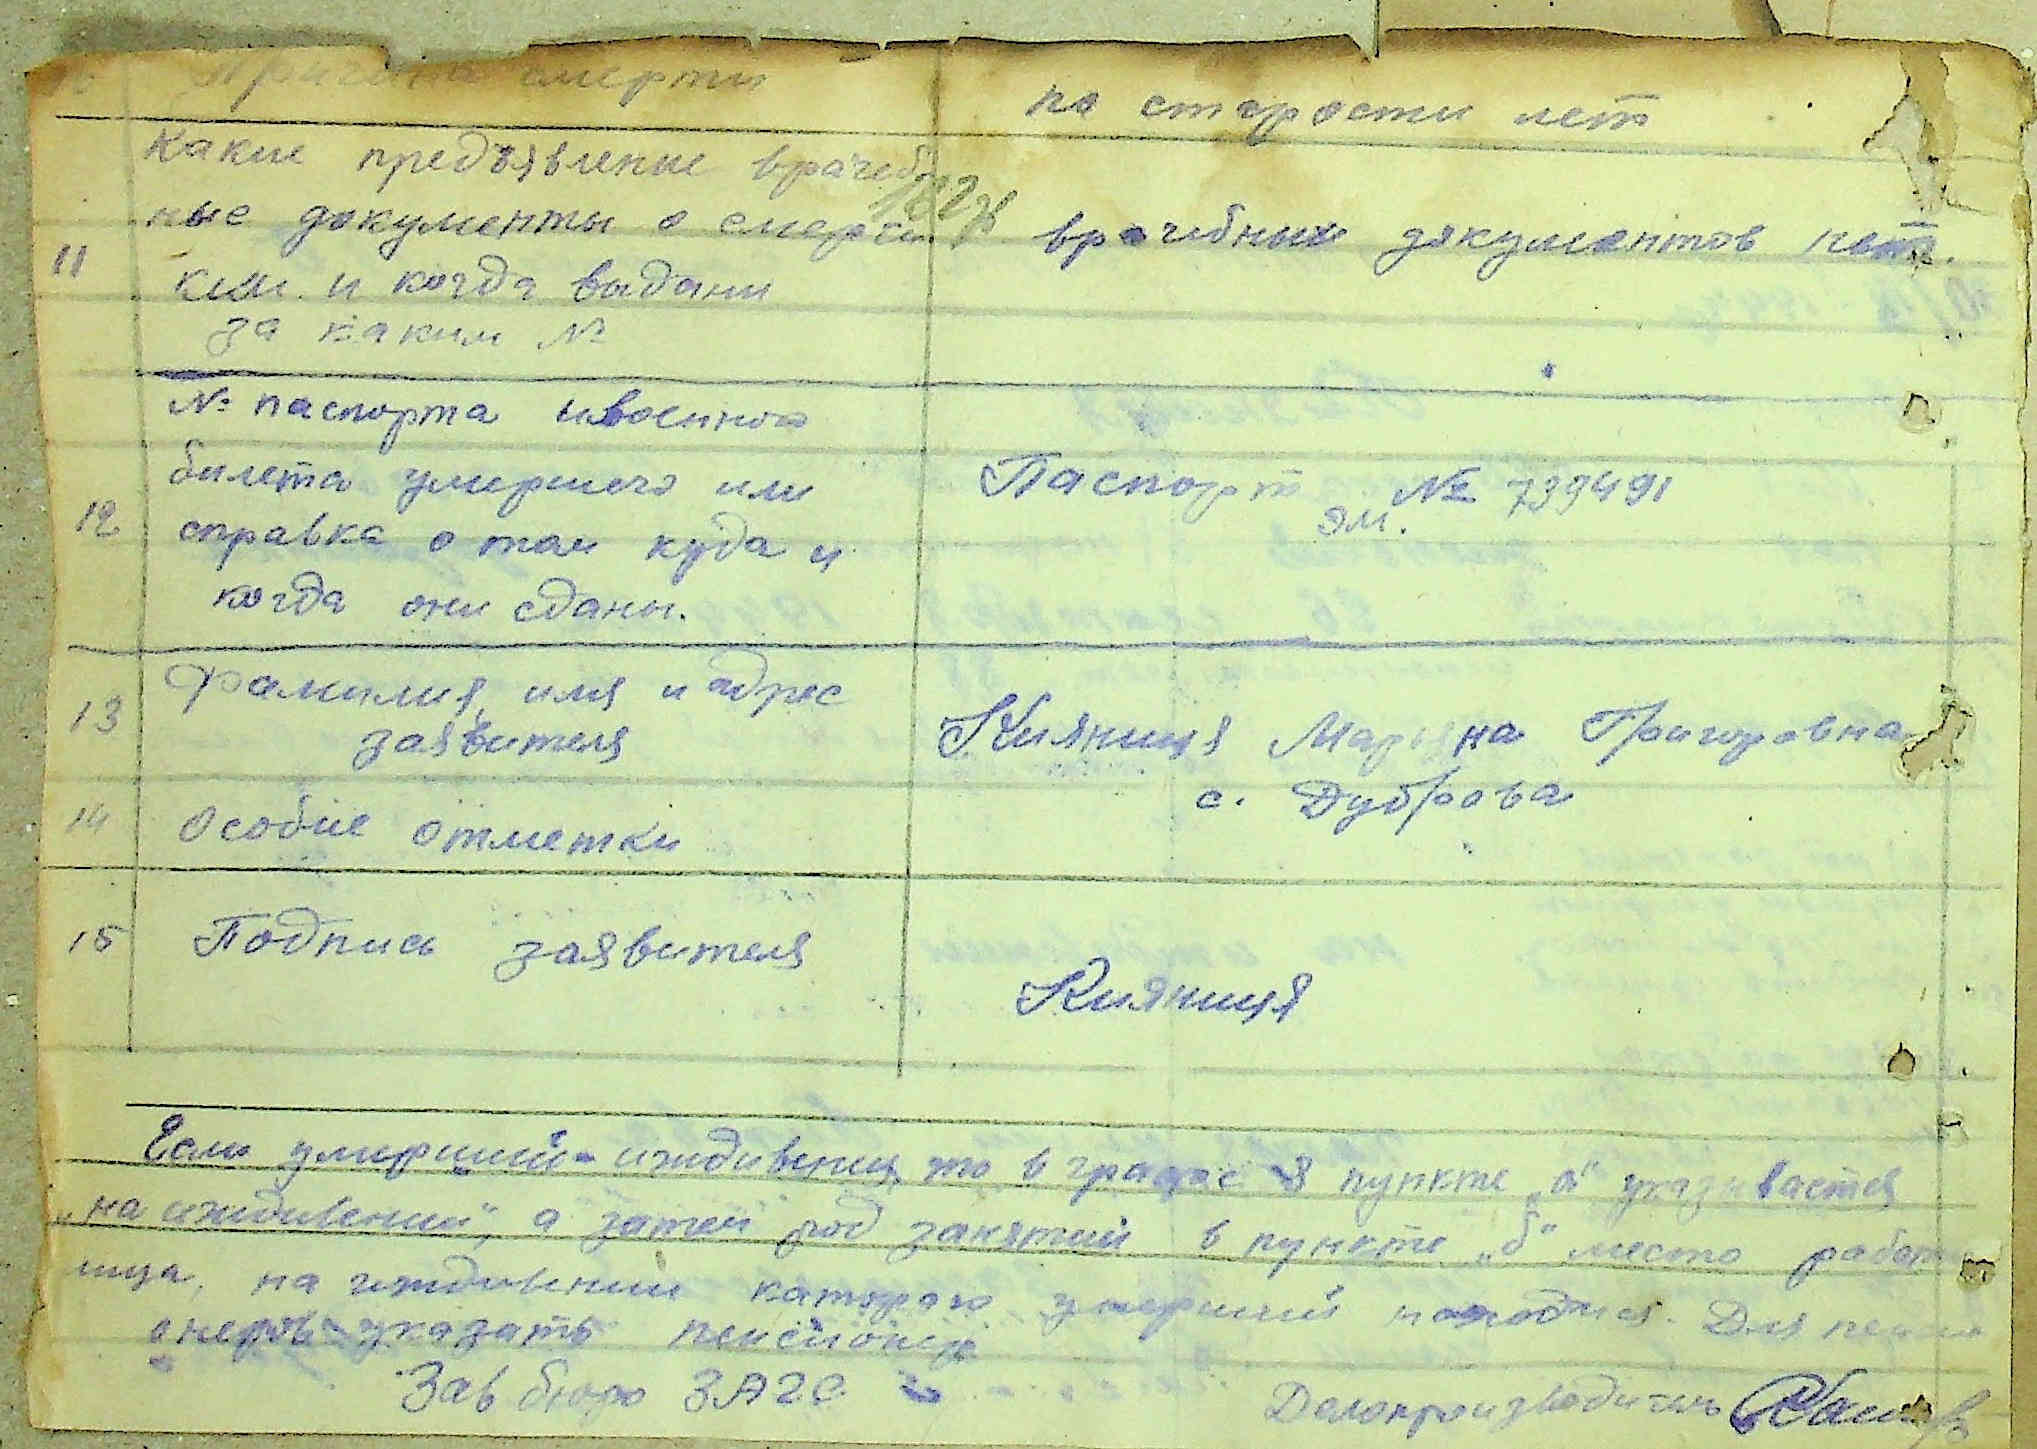 Причина смерти
по старости лет
Какие предъявление врачеб
ные документы о смерти
11
врачебных документов нет.
кем и когда выдани
за каким №
№ паспорта и военного
билета умершего или
Паспорт № 739491
эм.
12
справка о том куда и
когда они сданы.
Фамилия, имя и адрес
13
заявителя
Кияниця Марьяна Григоровна
с. Дуброва
14
Особые отметки
15
Подпись заявителя
Кияниця
Если умерший - иждивенец, то в графе 8 пункте „а" указывается
„на иждивении", а затем род занятий в пункте „б" место работы
лица, на иждивении которого умерший находился. Для пенси
онеров указать пенсионер
Зав бюро ЗАГС
Делопроизводитель